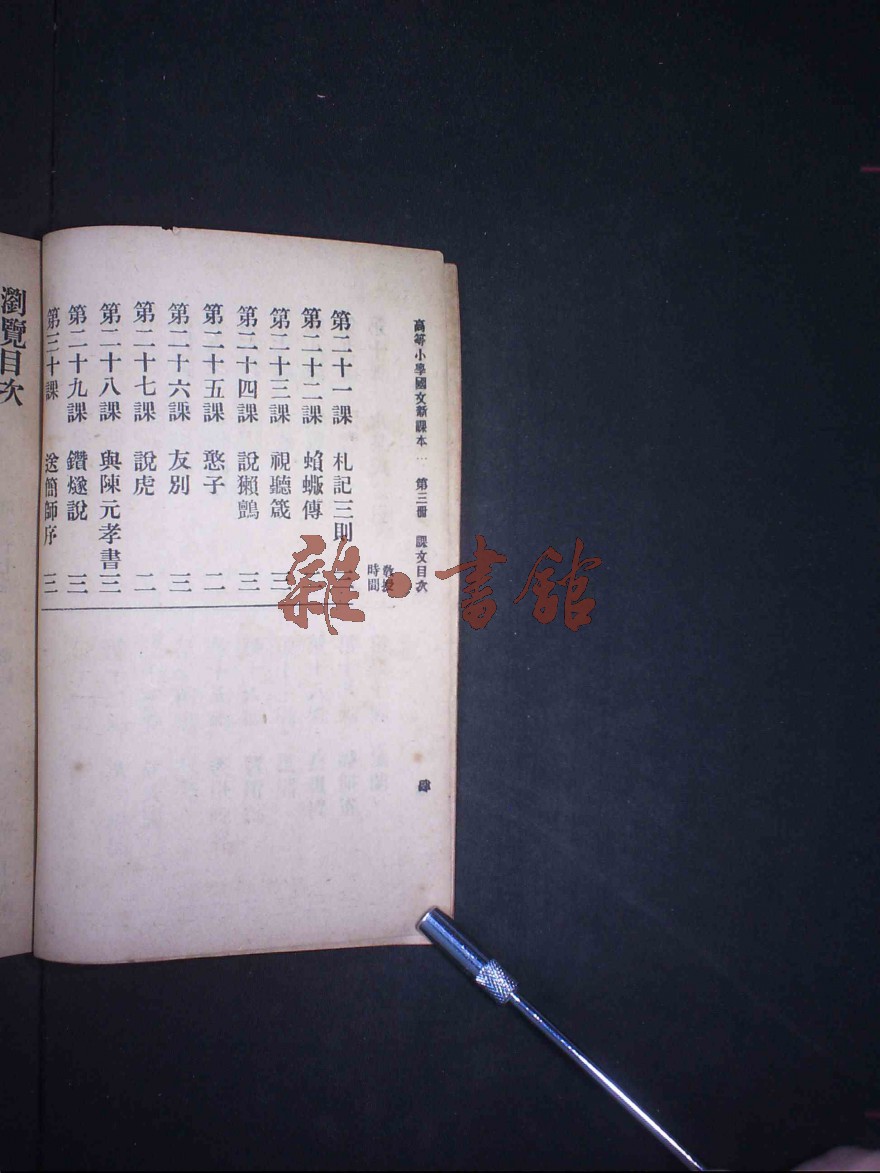 高等小學國文新課本 第三冊 課文目次
教授
時間
肆
第二十一課 札記三則
第二十二課 蝜蝂傳
第二十三課 視聽箴 三
第二十四課 說獺鸇 三
第二十五課 憨子 二
第二十六課 友別 三
第二十七課 說虎 二
第二十八課 與陳元孝書 三
第二十九課 鑽燧說 三
第三十課 送簡師序 三
瀏覽目次
雜·書館